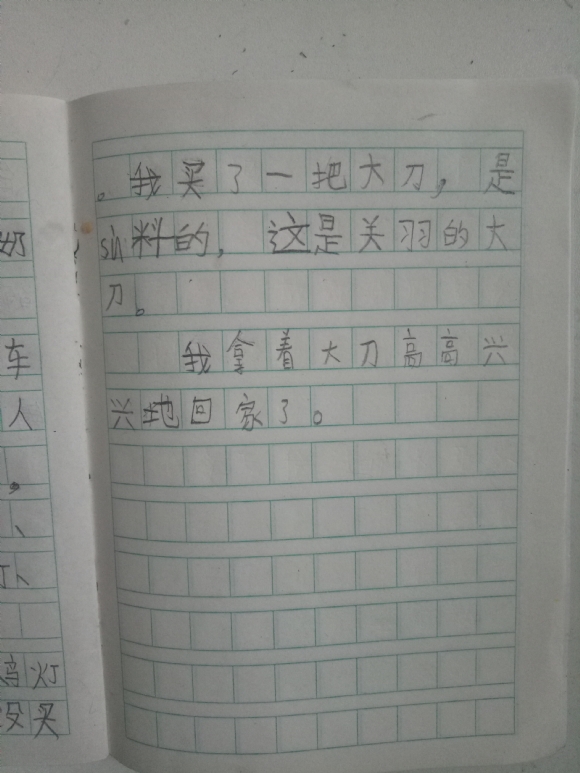 奶
车
人
。
、
灯
没买
。我买了一把大刀，是
sù料的，这是关羽的大
刀。
我拿着大刀高高兴
兴地回家了。